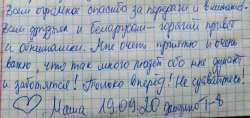 Вам огромное спасибо за передачи и внимание.
Вам друзья и беларусам - горячий привет
и обнимашки. Мне очень приятно и очень
важно, что так много людей обо мне думают
и заботятся! Только вперёд! Не сдавайтесь!
Маша 19.09.20 1-8